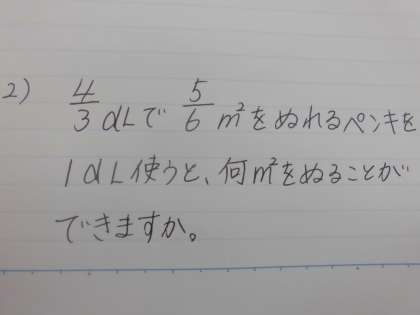 2) 4/3 dLで 5/6 m²をぬれるペンキを
1dL使うと、何m²をぬることが
できますか。